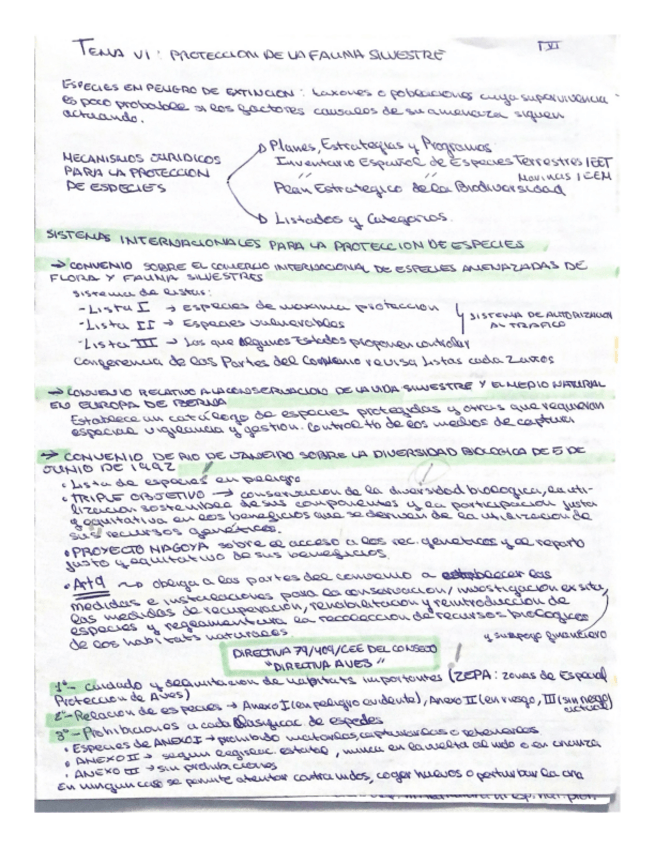 TEMA VI: PROTECCION DE LA FAUNA SILVESTRE
TVI
ESPECIES EN PELIGRO DE EXTINCION: taxones o poblaciones cuya supervivencia
es poco probable si los factores causales de su amenaza siguen
actuando.
MECANISMOS JURIDICOS
PARA LA PROTECCION
DE ESPECIES
Planes, Estrategias y Programas
Inventario Español de Especies Terrestres IEET
" " Marinas IEEM
Plan Estrategico de la Biodiversidad
Listados y Categorias.
SISTEMAS INTERNACIONALES PARA LA PROTECCION DE ESPECIES
→ CONVENIO SOBRE EL COMERCIO INTERNACIONAL DE ESPECIES AMENAZADAS DE
FLORA Y FAUNA SILVESTRES
Sistema de listas:
- Lista I → Especies de maxima proteccion
- Lista II → Especies vulnerables
- Lista III → Las que algunos Estados proponen controlar
SISTEMA DE AUTORIZACION
AL TRAFICO
Conferencia de las Partes del Convenio revisa listas cada 2 años
→ CONVENIO RELATIVO A LA CONSERVACION DE LA VIDA SILVESTRE Y EL MEDIO NATURAL
EN EUROPA DE BERNA
Establece un catálogo de especies protegidas y otras que requieren
especial vigilancia y gestion. Control tb de los medios de captura
→ CONVENIO DE RIO DE JANEIRO SOBRE LA DIVERSIDAD BIOLOGICA DE 5 DE
JUNIO DE 1992
• Lista de especies en peligro
• TRIPLE OBJETIVO → conservacion de la diversidad biologica, la uti-
lizacion sostenible de sus componentes y la participacion justa
y equitativa en los beneficios que se deriven de la utilizacion de
sus recursos genéticos.
• PROYECTO NAGOYA sobre el acceso a los rec. geneticos y el reparto
justo y equitativo de sus beneficios.
• Art 9 → obliga a las partes del convenio a establecer las
medidas e instalaciones para la conservacion/investigacion ex situ,
las medidas de recuperacion, rehabilitacion y reintroduccion de
especies y reglamentara la recoleccion de recursos biologicos
de los habitats naturales
y su apoyo financiero
DIRECTIVA 79/409/CEE DEL CONSEJO
"DIRECTIVA AVES"
1º- Cuidado y delimitacion de habitats importantes (ZEPA: zonas de Especial
Protección de Aves)
2º- Relacion de especies → Anexo I (en peligro evidente), Anexo II (en riesgo), III (sin riesgo
actual)
3º- Prohibiciones a cada clasificac. de especies
• Especies de ANEXO I → prohibido matarlas, capturarlas o retenerlas
• ANEXO II → segun legislac. estatal, nunca en la vuelta al nido o en crianza
• ANEXO III → sin prohibiciones
En ningun caso se permite atentar contra nidos, coger huevos o perturbar la cria